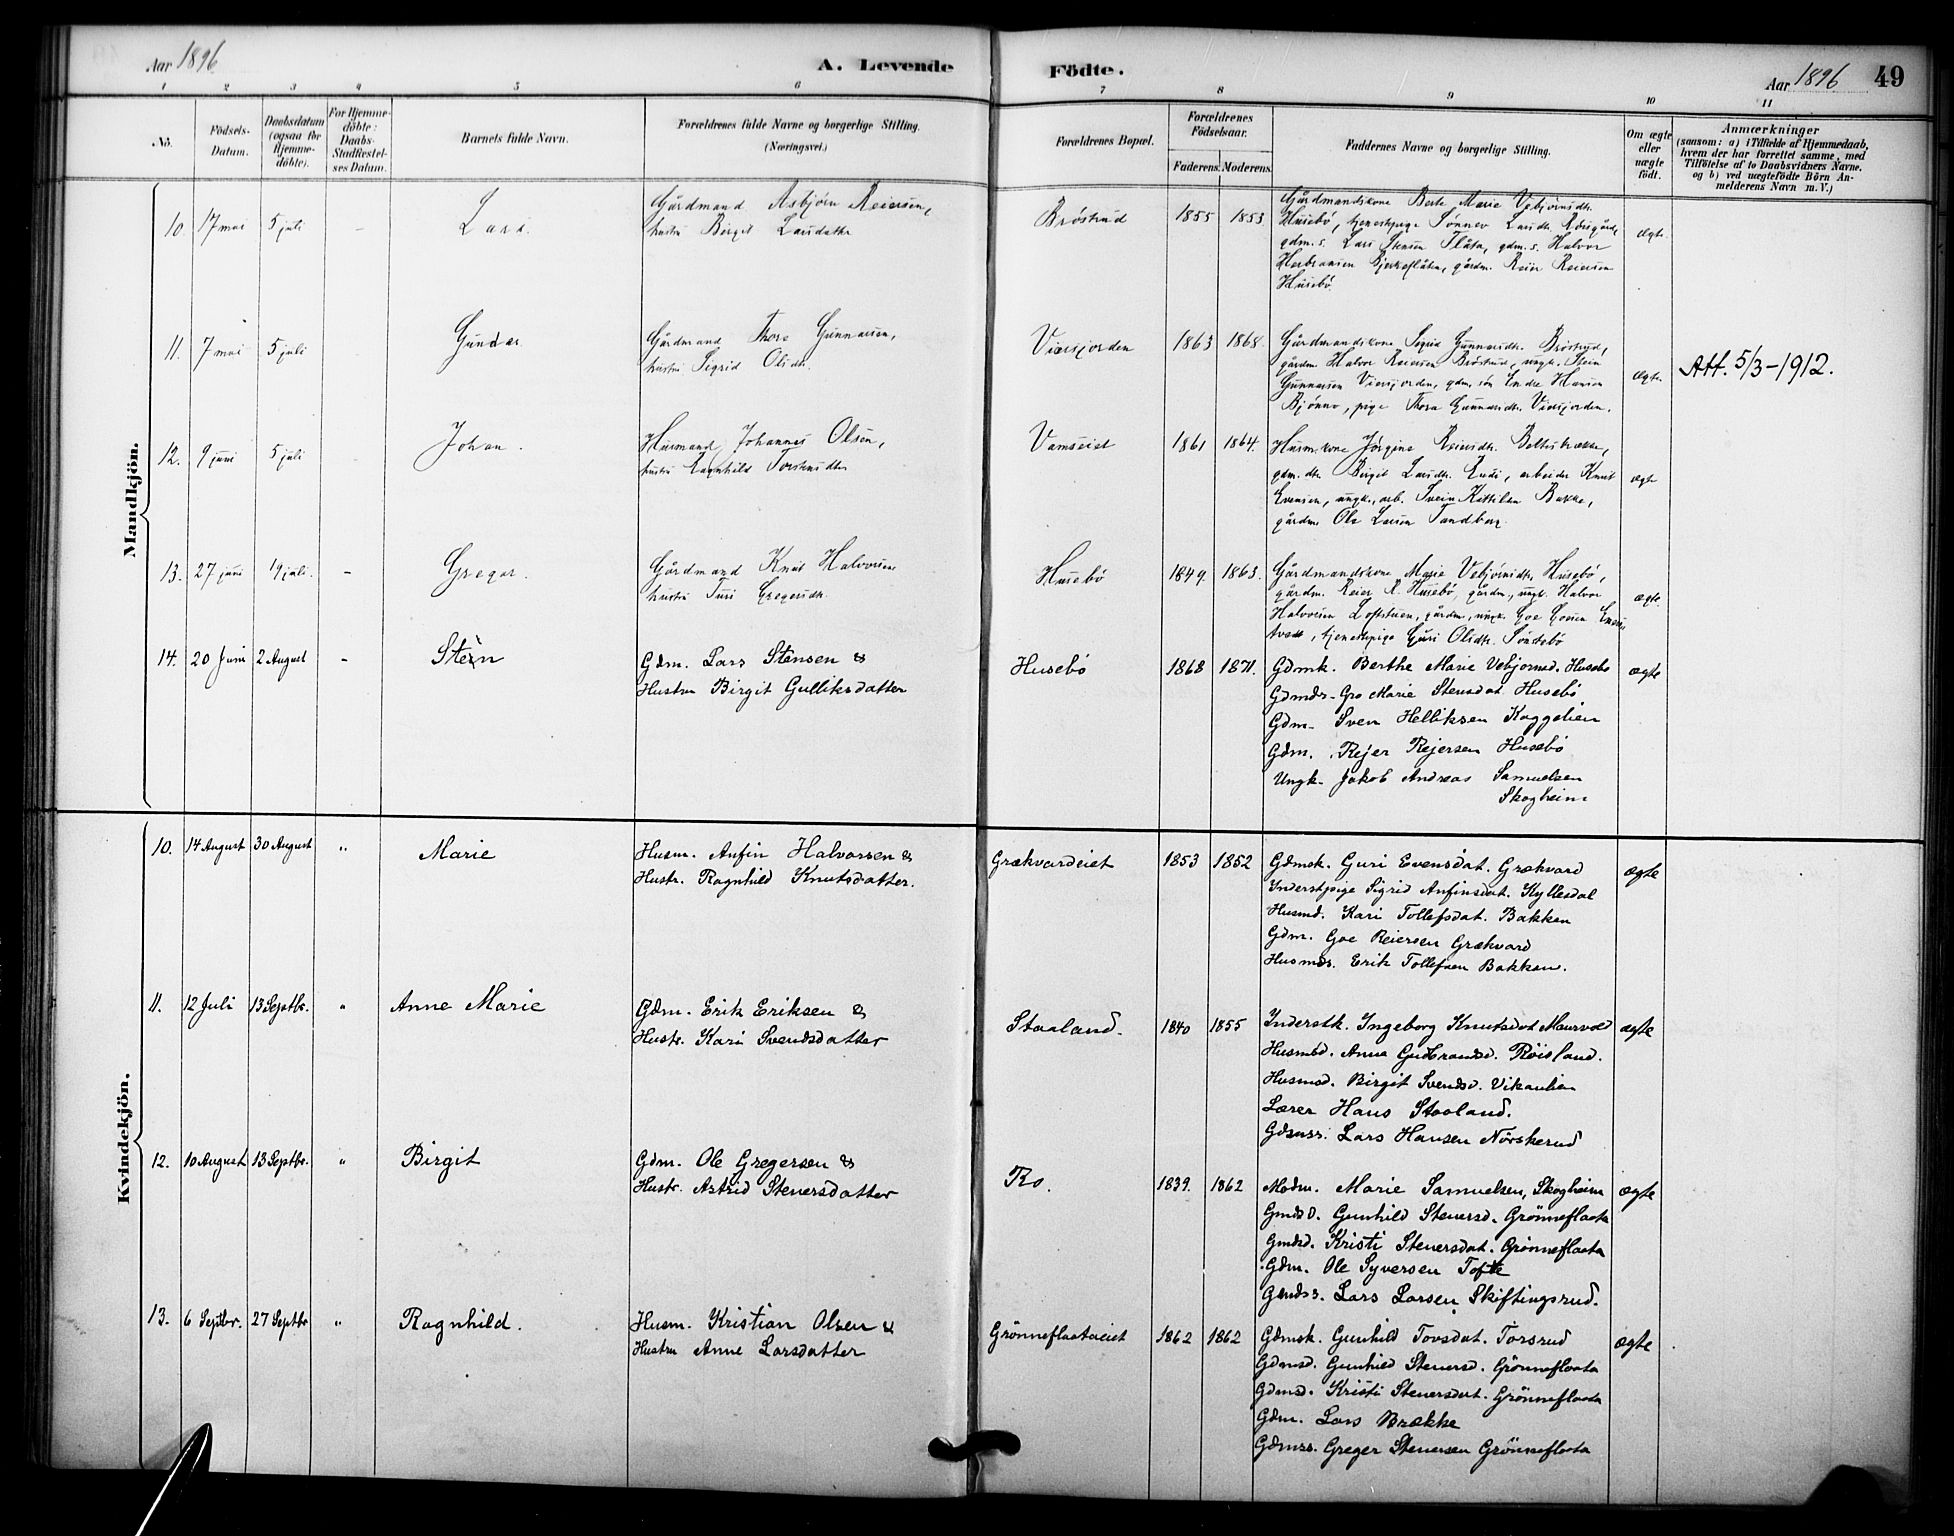 Aar 1896
A. Levende
Födte.
Aar 1896
49
1 2 3 4 5 6 7 8 9 10 11
No.
Födsels-
Datum.
Daabsdatum
(ogsaa for
Hjemme-
döbte).
For Hjemme-
döbte:
Daabs-
Stadfæstel-
ses Datum.
Barnets fulde Navn.
Forældrenes fulde Navne og borgerlige Stilling.
(Næringsvei.)
Forældrenes Bopæl.
Forældrenes
Födselsaar.
Faderens. Moderens.
Faddernes Navne og borgerlige Stilling.
Om ægte
eller
uægte
födt.
Anmærkninger
(saasom: a) i Tilfælde af Hjemmedaab,
hvem der har forrettet samme, med
Tilföielse af to Daabsvidners Navne.
og b) ved uægtefödte Börn An-
melderens Navn m. V.)
Mandkjön.
10. 17 mai 5 juli - Lars.
Gårdmand Asbjørn Reiersen,
hustru Birgit Larsdatter
Brøstrud 1855 1853
Gårdmandskone Berte Marie Vebjørnsdtr.
Husebö, tjenestepige Sønnev Larsdtr. Rösegårde,
gdm. s. Lars Stensen Flåta, gdm. s. Halvor
Herbransen Bjerkeflåten, gårdm. Reier Reiersen
Husebö.
ægte.
11. 7 mai 5 juli Gunder
Gårdmand Thore Gunnarsen,
hustru Sigrid Olsdtr.
Viersjorden 1863 1868
Gårdmandskone Sigrid Gunnarsdtr. Brøstrud,
gårdm. Halvor Reiersen Brøstrud, ungk. Stein
Gunnarsen Viersjorden, gdm. søn Endre Hansen
Bjønno, pige Thora Gunnarsdtr. Viersjorden.
ægte.
Att. 5/3-1912.
12. 9 juni 5 juli Johan.
Husmand Johannes Olsen,
hustru Ragnhild Torstensdtr.
Vamseiet 1861 1864.
Husm.kone Jørgine Reiersdtr. Beltesbrække,
gdm. dtr. Birgit Larsdtr. Rudi, arbeider Knut
Evensen, ungk., arb. Svein Kittilsen Bakke,
gårdm. Ole Larsen Sandberg.
ægte
13. 27 juni 19 juli. - Gregar.
Gårdmand Knut Halvorsen
hustru Turi Gregersdtr.
Husebö 1849 1863.
Gårdmandskone Marie Vebjørnsdtr. Husebö,
gårdm. Reier R. Husebö, gårdm., ungk. Halvor
Halvorsen Loftstuen, gårdm., ungk. Goe Goesen
tvedt, tjenestepige Guri Olsdtr. Søndrebö
ægte.
14. 20 Juni 2 August - Stein
Gdm. Lars Stensen &
Hustru Birgit Gulliksdatter
Husebö 1868 1871.
Gdmk. Berthe Marie Vebjørnsd. Husebö
Gdmdr. Gro Marie Stensdat. Husebö
Gdm. Sven Helliksen Kaggelien
Gdm. Rejer Rejersen Husebö
Ungk. Jakob Andreas Samuelsen
Skogheim
ægte
Kvindekjön.
10. 14 August 30 August " Marie
Husm. Anfin Halvorsen &
Hustr. Ragnhild Knutsdatter.
Grækvardeiet 1853 1852
Gdmsk. Guri Evensdat. Grækvard
Inderstpige Sigrid Anfinsdat. Kyllesdal
Husmd. Kari Tollefsdat. Bakken
Gdm. Goe Reiersen Grækvard
Husmds. Erik Tollefsen Bakken.
ægte
11. 12 Juli 13 Septbr. " Anne Marie
Gdm. Erik Eriksen &
Hustr. Kari Svendsdatter
Staaland. 1840 1855
Inderstk. Ingeborg Knutsdat Maurvold
Husmsd. Anna Gudbrandsd. Röisland.
Husmsd. Birgit Svendsd. Vikaulien
Lærer Hans Staaland.
Gdmss. Lars Hansen Nörskerud
ægte
12. 10 August 13 Septbr. " Birgit
Gdm. Ole Gregersen &
Hustr. Astrid Stenersdatter
Ro. 1839. 1862
Madm. Marie Samuelsen, Skogheim
Gmdsd. Gunhild Stenersd. Grönneflaata
Gmdsd. Kristi Stenersdat. Grönneflaata
Gdm. Ole Syversen Tofte
Gmdss. Lars Larsen Skiftingsrud.
ægte
13. 6 Septbr. 27 Septbr " Ragnhild.
Husm. Kristian Olsen &
Hustru Anne Larsdatter
Grönneflaataeiet 1862 1862
Gdmsk. Gunhild Tovsdat. Torsrud
Gdmsd. Gunhild Stenersd. Grönneflaata
Gdmsd. Kristi Stenersdat. Grönneflaata
Gdm. Lars Brække
Gdmss. Greger Stenersen Grönneflaata
ægte